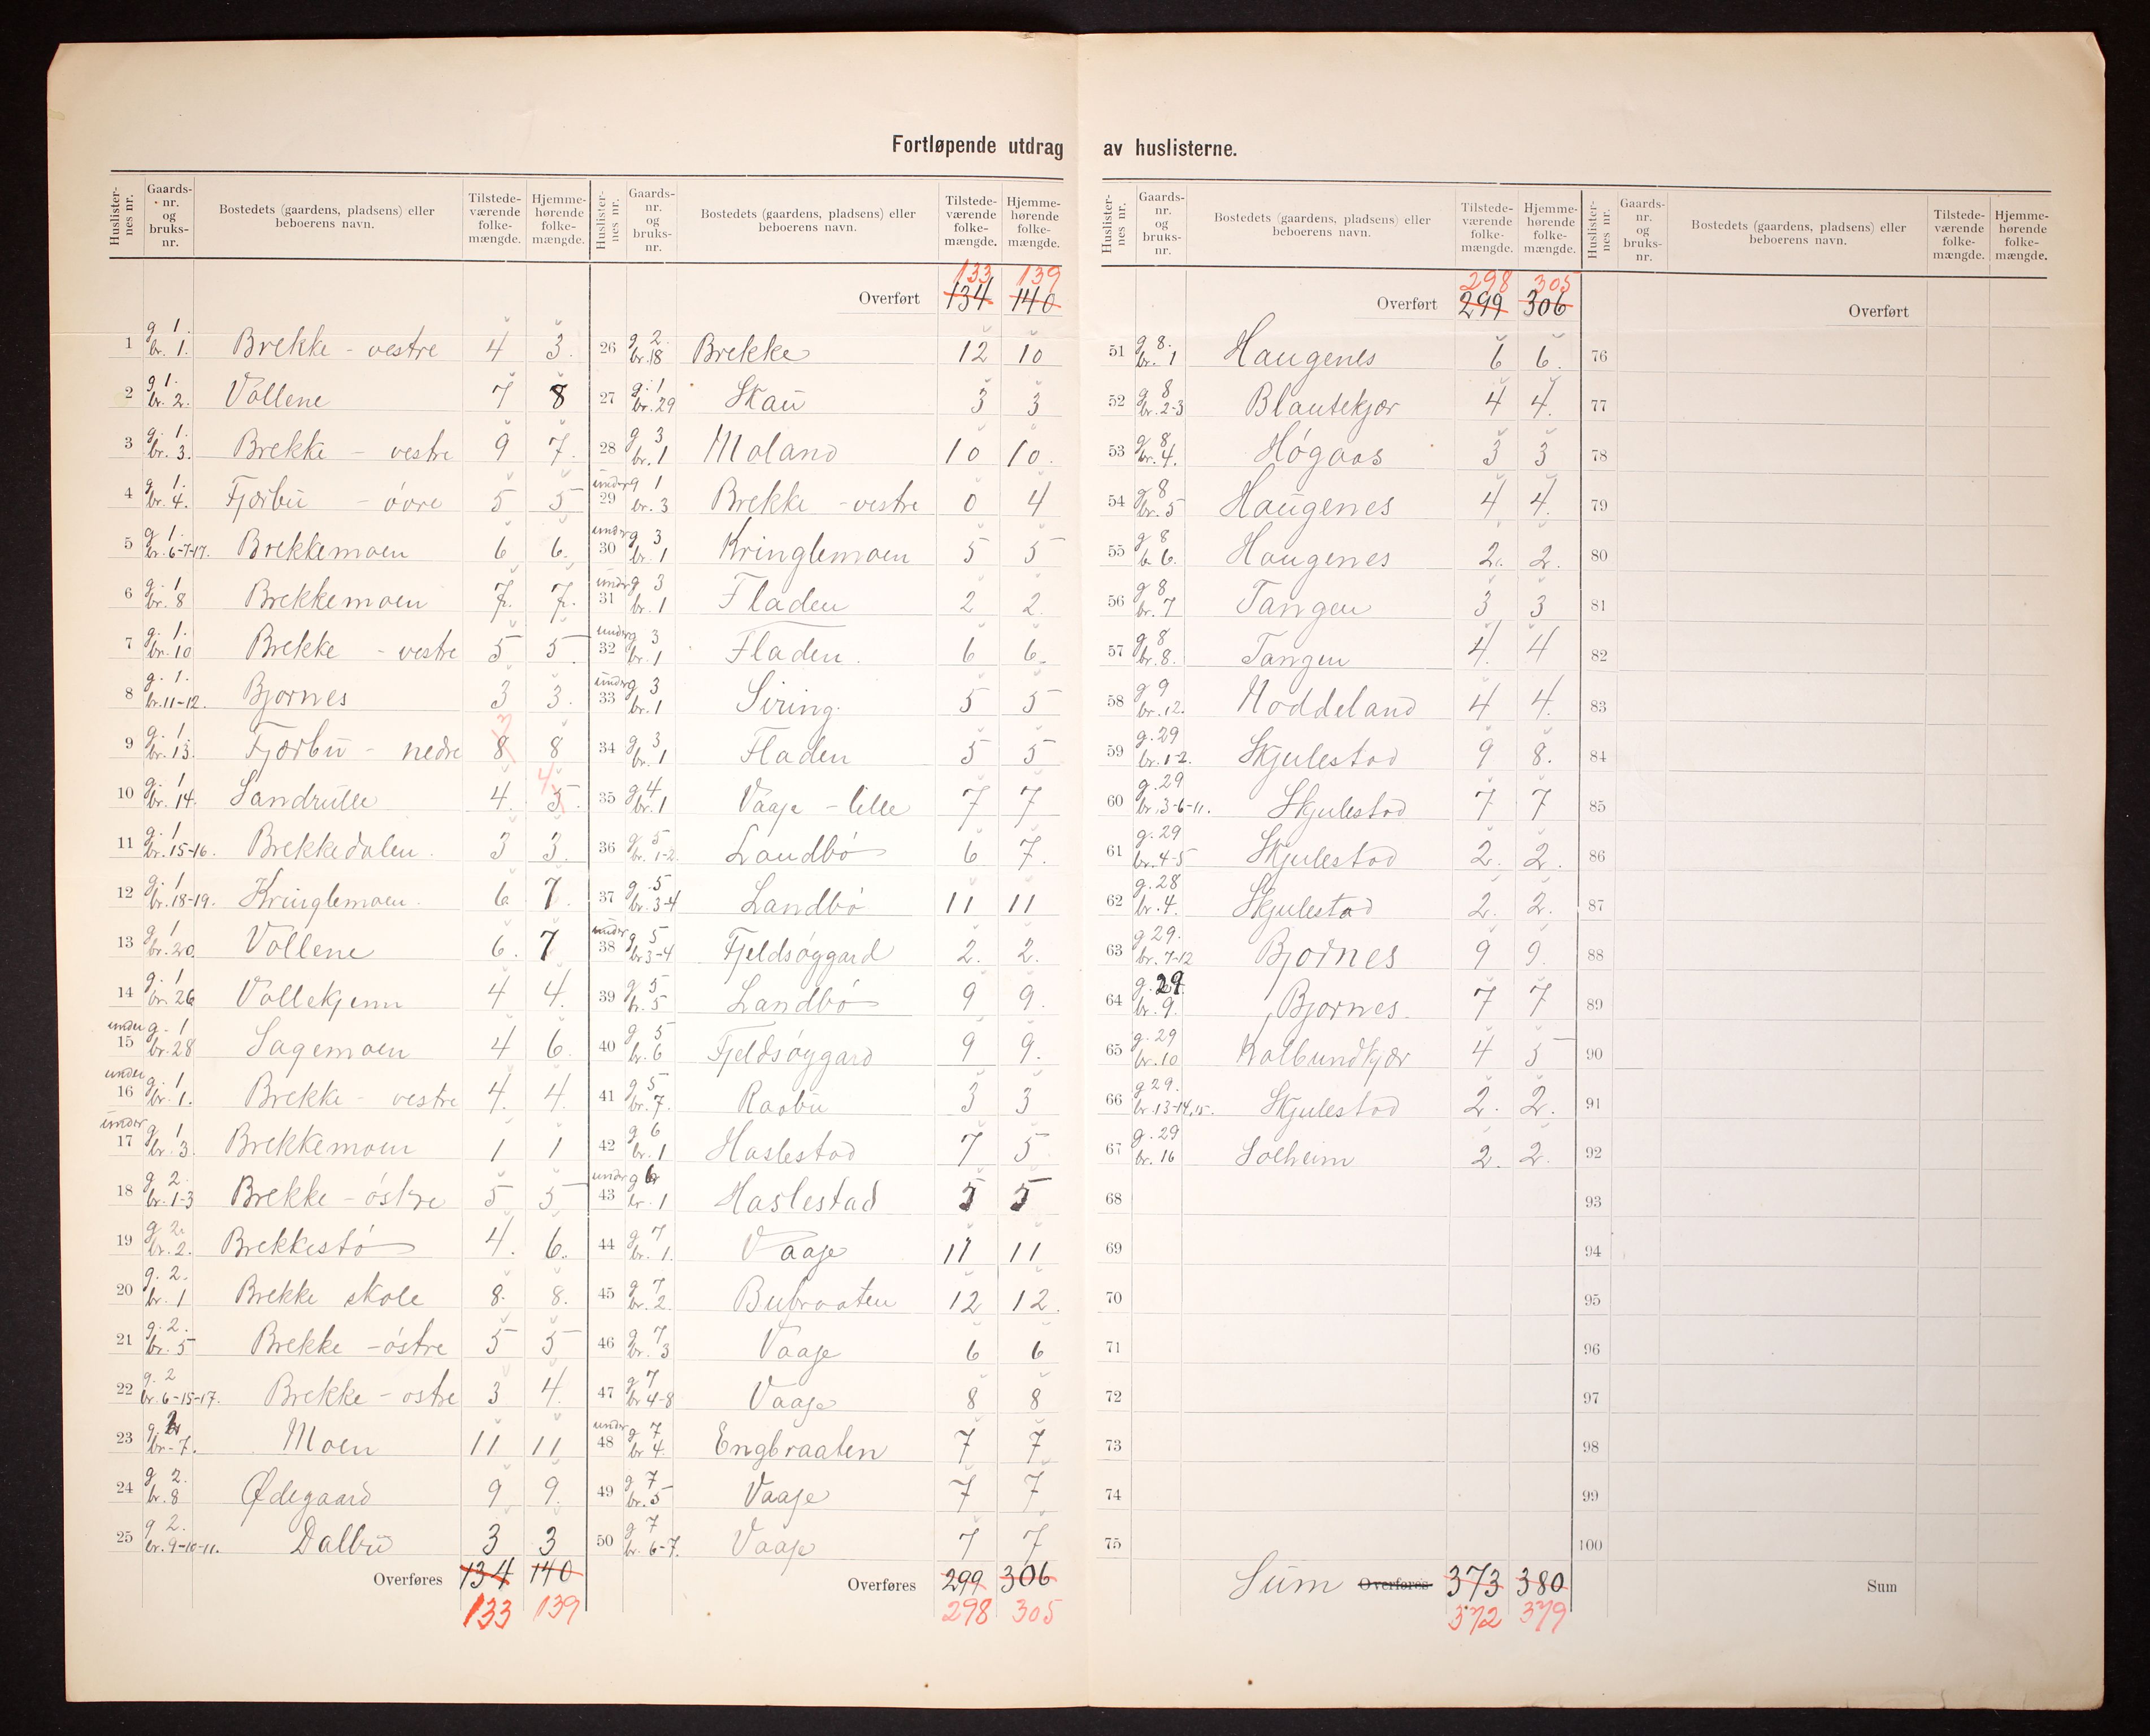 Fortløpende utdrag av huslisterne.
Huslisternes nr. Gaards-nr. og bruks-nr. Bostedets (gaardens, pladsens) eller beboerens navn. Tilstedeværende folkemængde. Hjemmehørende folkemængde.
1 g. 1. br. 1. Brekke - vestre 4 3.
2 g 1. br. 2. Vollene 7 8
3 g. 1. br. 3. Brekke - vestre 9 7.
4 g 1. br. 4. Fjærbu - óvre 5 5
5 g 1. br. 6-7-17. Brekkemoen 6 6.
6 g. 1 br. 8 Brekkemoen 7. 7.
7 g. 1. br. 10 Brekke - vestre 5 5.
8 g. 1. br. 11-12. Bjornes 3 3.
9 g. 1. br. 13. Fjærbu - nedre 8 8
10 g. 1 br. 14. Sandrulle 4. 5. 4
11 g. 1 br. 15-16. Brekkedalen. 3 3.
12 g. 1 br. 18-19. Kringlemoen. 6 7.
13 g. 1 br. 20. Vollene 6. 7
14 g. 1 br. 26 Vollekjenn 4 4.
under 15 g. 1 br. 28 Sagemoen 4 6.
under 16 g. 1 br. 1. Brekke - vestre 4. 4.
under 17 g 1 br. 3. Brekkemoen 1 1
18 g 2. br. 1-3 Brekke - óstre 5 5
19 g 2. br. 2. Brekkestó 4. 6.
20 g. 2. br. 1 Brekke skole 8. 8.
21 g. 2. br. 5 Brekke - óstre 5 5
22 g. 2 br. 6-15-17. Brekke - ostre 3 4.
23 g. br. 7. Moen 11 11
24 g 2. br. 8 Ødegaard 9 9.
25 g 2. br. 9-10-11. Dalbu 3 3
Overføres 134 140
133 139
Huslisternes nr. Gaards-nr. og bruks-nr. Bostedets (gaardens, pladsens) eller beboerens navn. Tilstedeværende folkemængde. Hjemmehørende folkemængde.
133 139
Overført 134 140
26 g. 2. br. 18 Brekke 12 10
27 g. 1 br. 29 Skau 3 3
28 g 3 br. 1 Moland 10 10.
under 29 g 1 br. 3 Brekke - vestre 0 4
under 30 g 3 br. 1 Kringlemoen 5 5
under 31 g 3 br. 1 Fladen 2 2.
under 32 g 3 br. 1 Fladen. 6 6.
under 33 g 3 br. 1 Siring. 5 5
34 g 3 br. 1 Fladen 5 5
35 g 4 br. 1 Vaaje - lille 7 7
36 g 5 br. 1-2. Landbó 6 7.
37 g 5 br. 3-4 Landbó 11 11
under 38 g 5 br. 3-4 Fjeldsóggard 2. 2.
39 g 5 br. 5 Landbó 9 9.
40 g 5 br. 6 Fjeldsóggard 9 9.
41 g 5 br. 7. Raabu 3 3
42 g 6 br. 1 Haslestad 7 5
under 43 g 6 br. 1 Haslestad 5 5
44 g 7 br. 1. Vaaje 11 11
45 g 7 br. 2. Bubraaten 12 12.
46 g 7 br. 3 Vaaje 6 6
47 g 7 br 4-8 Vaaje 8 8
under 48 g 7 br 4. Engbraaten 7 7
49 g 7 br. 5 Vaaje 7 7
50 g 7 br. 6-7. Vaaje 7 7
Overføres 299 306
298 305
Huslisternes nr. Gaards-nr. og bruks-nr. Bostedets (gaardens, pladsens) eller beboerens navn. Tilstedeværende folkemængde. Hjemmehørende folkemængde.
298 305
Overført 299 306
51 g 8. br. 1 Haugenes 6 6.
52 g 8 br. 2-3 Blautekjær 4 4.
53 g 8 br. 4. Hógaas 3 3
54 g 8 br. 5 Haugenes 4 4.
55 g 8 b 6. Haugenes 2. 2.
56 g 8 br. 7 Tangen 3 3
57 g 8 br. 8. Tangen 4. 4
58 g 9 br. 12. Noddeland 4 4.
59 g. 29 br. 1-2. Skjulestad 9 8.
60 g. 29 br. 3-6-11. Skjulestad 7 7
61 g. 29 br. 4-5 Skjulestad 2. 2.
62 g. 28 br. 4. Skjulestad 2. 2.
63 g 29. br. 7-12 Bjornes 9 9.
64 g. 29. br. 9. Bjornes. 7 7
65 g. 29 br. 10 Kolbundkjær 4 5
66 g 29. br. 13-14,15. Skjulestad 2. 2.
67 g. 29 br. 16 Solheim 2. 2.
68
69
70
71
72
73
74
75
Sum Overføres 373 380
372 379
Huslisternes nr. Gaards-nr. og bruks-nr. Bostedets (gaardens, pladsens) eller beboerens navn. Tilstedeværende folkemængde. Hjemmehørende folkemængde.
Overført
76
77
78
79
80
81
82
83
84
85
86
87
88
89
90
91
92
93
94
95
96
97
98
99
100
Sum